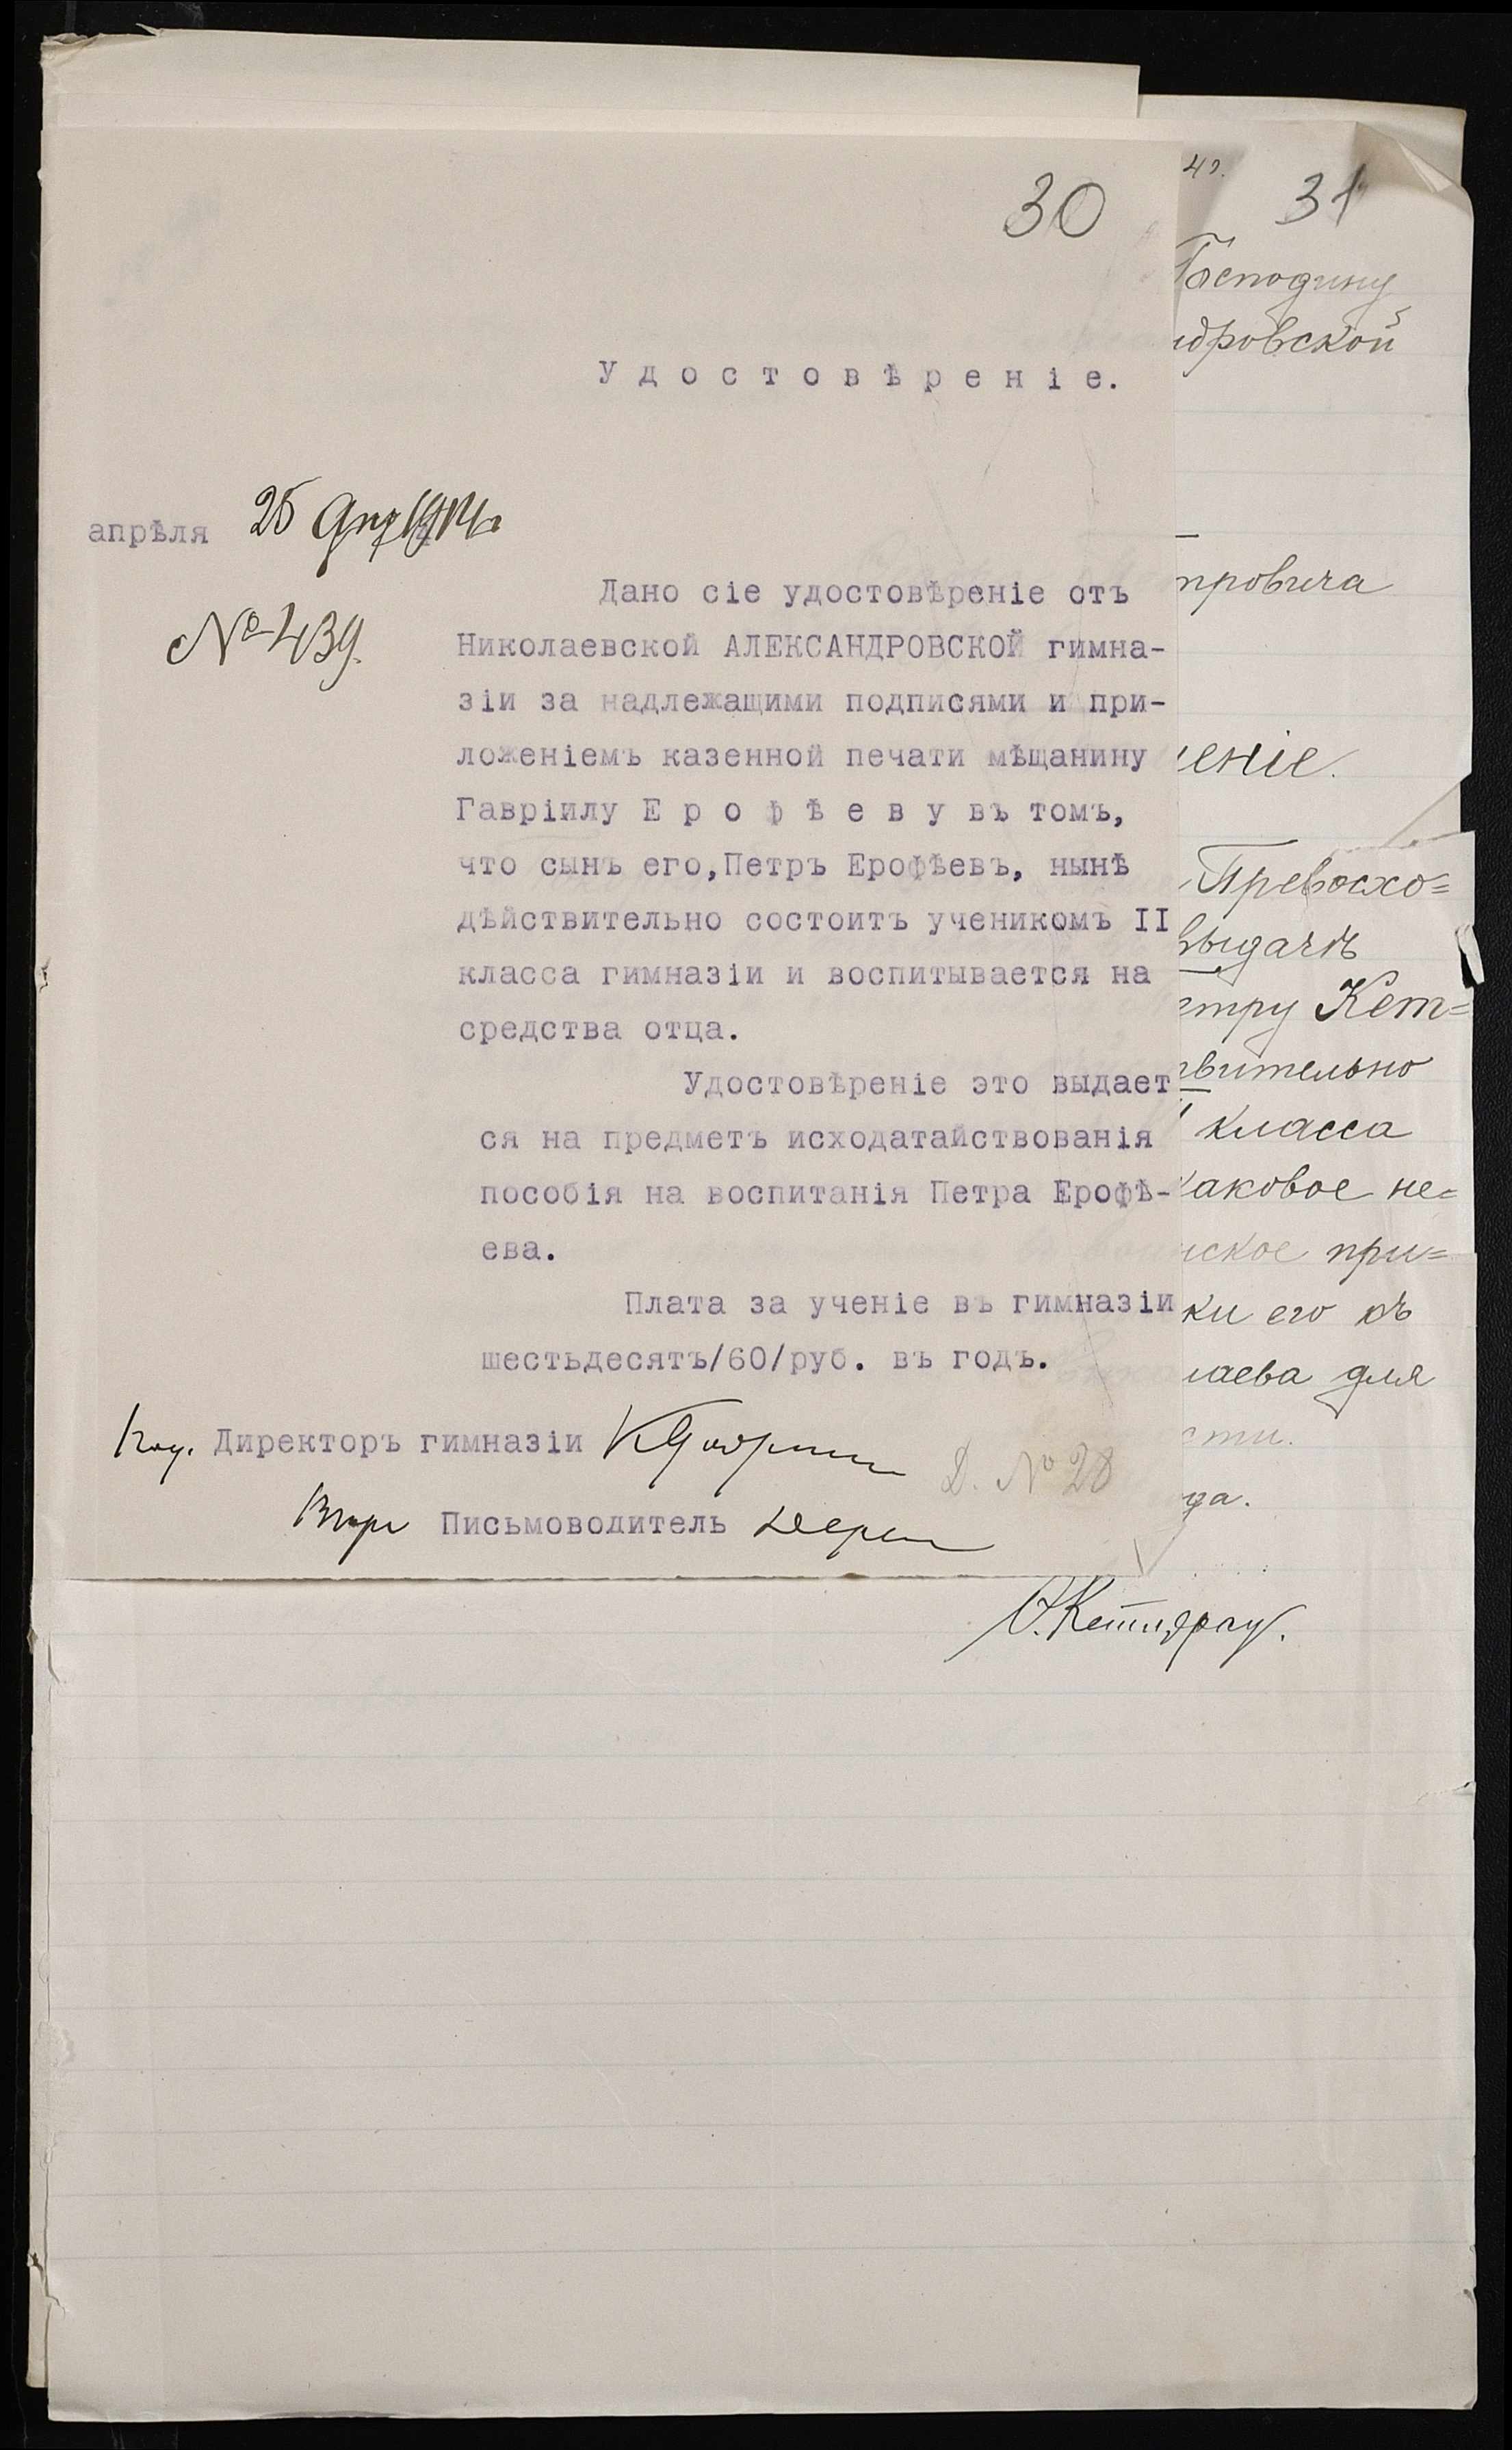 30
Удостовѣреніе.
апрѣля 25 Апр 1914 г
№ 439.
Дано сіе удостовѣреніе отъ
Николаевской АЛЕКСАНДРОВСКОЙ гимна-
зіи за надлежащими подписями и при-
ложеніемъ казенной печати мѣщанину
Гавріилу Ерофѣеву въ томъ,
что сынъ его,Петръ Ерофѣевъ, нынѣ
дѣйствительно состоитъ ученикомъ II
класса гимназіи и воспитывается на
средства отца.
Удостовѣреніе это выдает
ся на предметъ исходатайствованія
пособія на воспитанія Петра Ерофѣ-
ева.
Плата за ученіе въ гимназіи
шестьдесятъ/60/руб. въ годъ.
Директоръ гимназіи
Д. № 28
Письмоводитель
31
Господину
ндровской
тровича
еніе.
Превосхо=
выдачѣ
етру Кет=
твительно
класса
каковое не=
нское при=
ки его къ
лаева для
сти.
да.